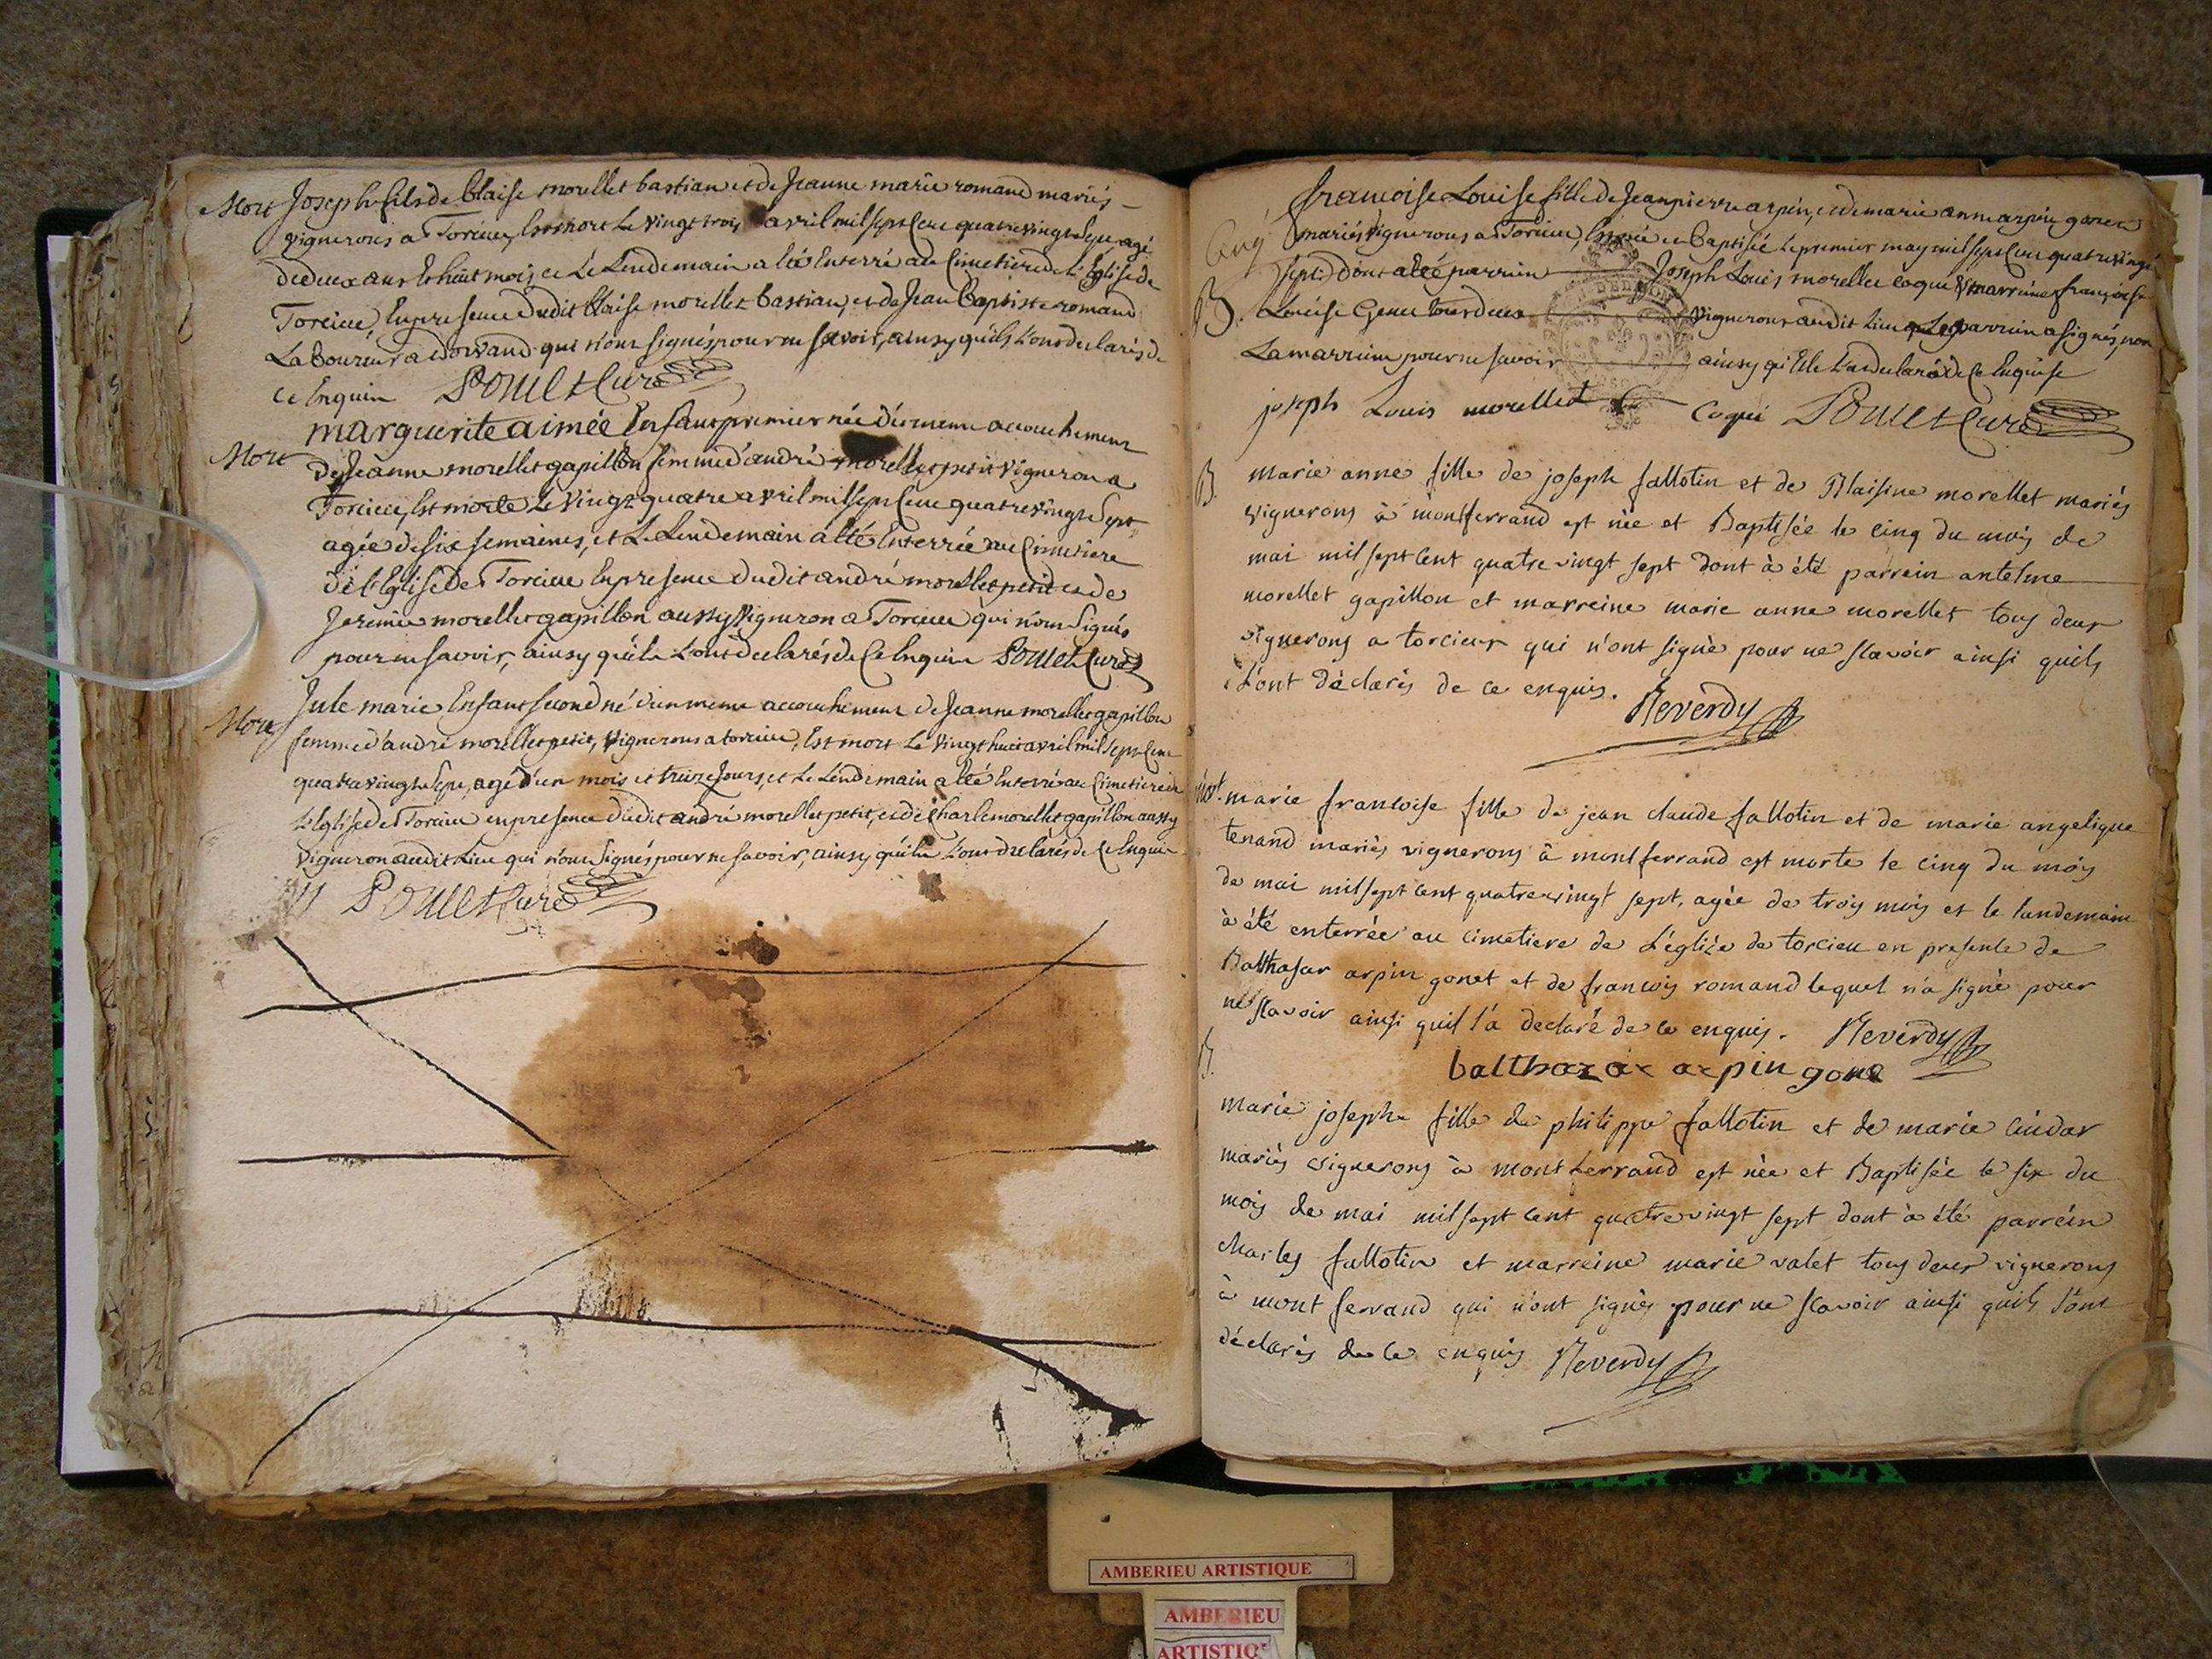 Mort Joseph fils de blaise morellet bastian et de Jeanne marie romand mariés
vignerons a Torcieu, Est mort Le vingt trois avril mil sept Cent quatre vingt Sept agé
de deux ans Et huit mois, et Le Lendemain a été Enterré au Cimetiere de L'Eglise de
Torcieu, En presence dudit blaise morellet bastian, et de Jean baptiste romand
Laboureur a dorvand qui n'ont signés pour ne savoir, ainsy qu'ils L'ont declarés de
Ce Enquis Pouillet Curé
marguerite aimée Enfant premier née d'un meme accouchement
Mort de Jeanne morellet gapillon femme d'andré morellet petit vigneron a
Torcieu, Est morte Le vingt quatre avril mil sept Cent quatre vingt Sept
agée de six semaines, et Le Lendemain a été Enterrée au Cimetiere
de L'Eglise de Torcieu En presence dudit andré morellet petit et de
Jeremie morellet gapillon aussy vigneron a Torcieu qui n'ont Signés
pour ne savoir, ainsy qu'ils L'ont declarés de Ce Enquis Pouillet Curé
Jule marie Enfant second né d'un meme accouchement de Jeanne morellet gapillon
Mort femme d'andré morellet petit, vignerons a torcieu, Est mort Le vingt huit avril mil sept Cent
quatre vingt Sept, agé d'un mois et treize Jours, et Le Lendemain a été Enterré au Cimetiere de
L'Eglise de Torcieu en presence dudit andré morellet petit, et de Charle morellet gapillon aussy
vigneron audit Lieu qui n'ont Signés pour ne savoir, ainsy qu'ils L'ont declarés de Ce Enquis
Pouillet Curé
francoise Louise fille de Jean pierre arpin, et de marie anne arpin gonet
mariés vignerons a Torcieu, Est née et Baptisée Le premier may mil sept Cent quatre vingt
sept: dont a été parrain Joseph Louis morellet coqui & marraine françoise
B. Louise vignerons audit Lieu Le parrain a signés, non
La marraine pour ne savoir ainsy qu'Elle L'a declaré de Ce Enquise
joseph Louis morellet Coqui Pouillet Curé
B. marie anne fille de joseph fallotin et de Blaisine morellet mariés
vignerons à montferrand est née et Baptisée le cinq du mois de
mai mil sept cent quatre vingt sept dont à été parrein antelme
morellet gapillon et marreine marie anne morellet tous deux
vignerons a torcieux qui n'ont signé pour ne scavoir ainsi quils
L'ont déclarés de ce enquis. Reverdy
mort. marie francoise fille de jean claude fallotin et de marie angelique
tenand mariés vignerons à montferrand est morte le cinq du mois
de mai mil sept cent quatre vingt sept, agée de trois mois et le lendemain
à été enterrée au cimetiere de L'églize de torcieu en presence de
Balthasar arpin gonet et de francois romand lequel n'a signé pour
ne scavoir ainsi quil l'a declaré de ce enquis. Reverdy
balthazar arpin gone
B.
marie josephe fille de philippe fallotin et de marie
mariés vignerons à mont ferrand est née et Baptisée le six du
mois de mai mil sept cent quatre vingt sept dont à été parrein
charles fallotin et marreine marie valet tous deux vignerons
à mont ferrand qui n'ont signés pour ne scavoir ainsi quils l'ont
déclarés de ce enquis Reverdy
AMBERIEU ARTISTIQUE
AMBERIEU
ARTISTIQ